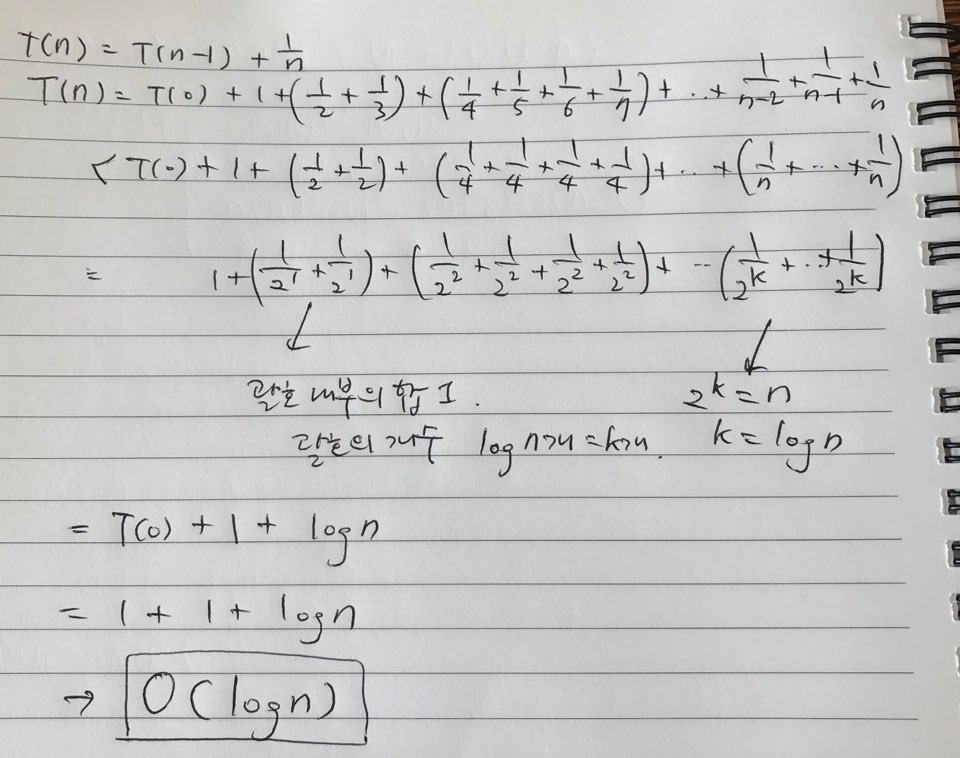 T(n) = T(n-1) + 1/n
T(n) = T(0) + 1 + (1/2 + 1/3) + (1/4 + 1/5 + 1/6 + 1/7) + ... + 1/n-2 + 1/n-1 + 1/n
< T(0) + 1 + (1/2 + 1/2) + (1/4 + 1/4 + 1/4 + 1/4) + ... + (1/n + ... + 1/n)
= 1 + (1/2^1 + 1/2^1) + (1/2^2 + 1/2^2 + 1/2^2 + 1/2^2) + -- (1/2^k + ... + 1/2^k)
괄호 내부의 합 1.
2^k = n
괄호의 개수 log n개 = k개.
k = log n
= T(0) + 1 + log n
= 1 + 1 + log n
→ O(log n)